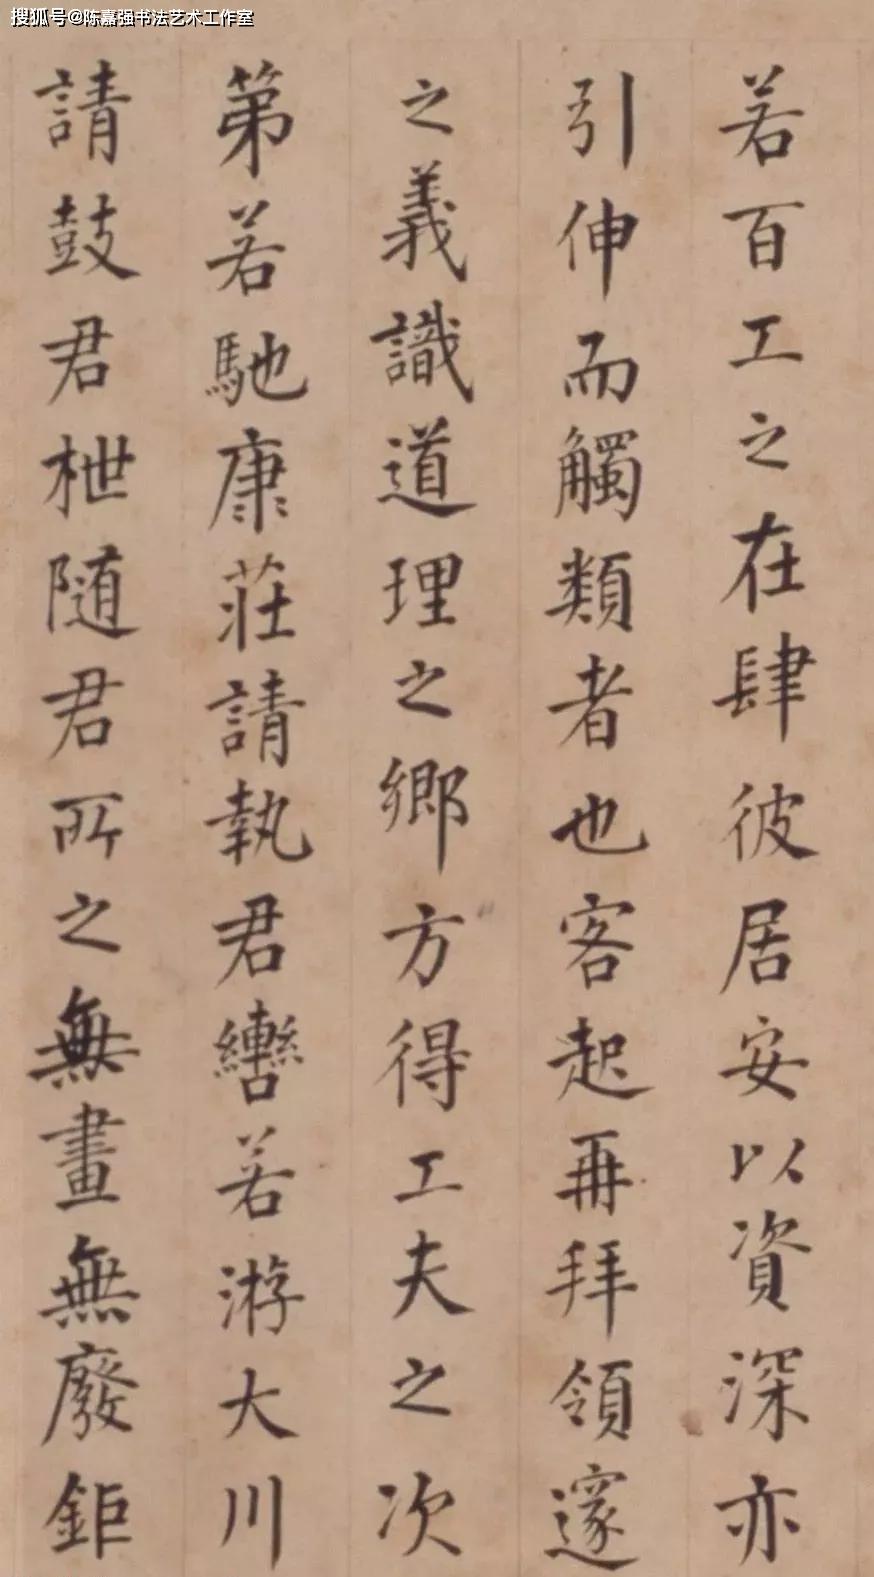 搜狐号@陈嘉强书法艺术工作室
若百工之在肆彼居安以資深亦
引伸而觸類者也客起再拜領邃
之義識道理之鄉方得工夫之次
第若馳康莊請執君轡若游大川
請鼓君枻随君所之無畫無廢鉅